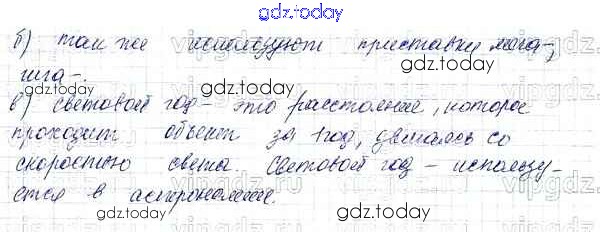 gdz.today
б) так же используют приставки мега-,
gdz.today
гига-.
в) световой год - это расстояние, которое
проходит объект за 1 год, двигаясь со
скоростью света. Световой год - использу-
ется в астрономии.
gdz.today
gdz.today